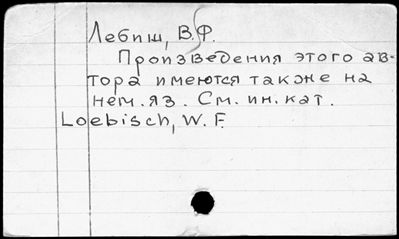 Лебиш, В.Ф.
Произведения этого ав-
тора имеются также на
нем.яз. См. ин. кат.
Loebisch, W. F.